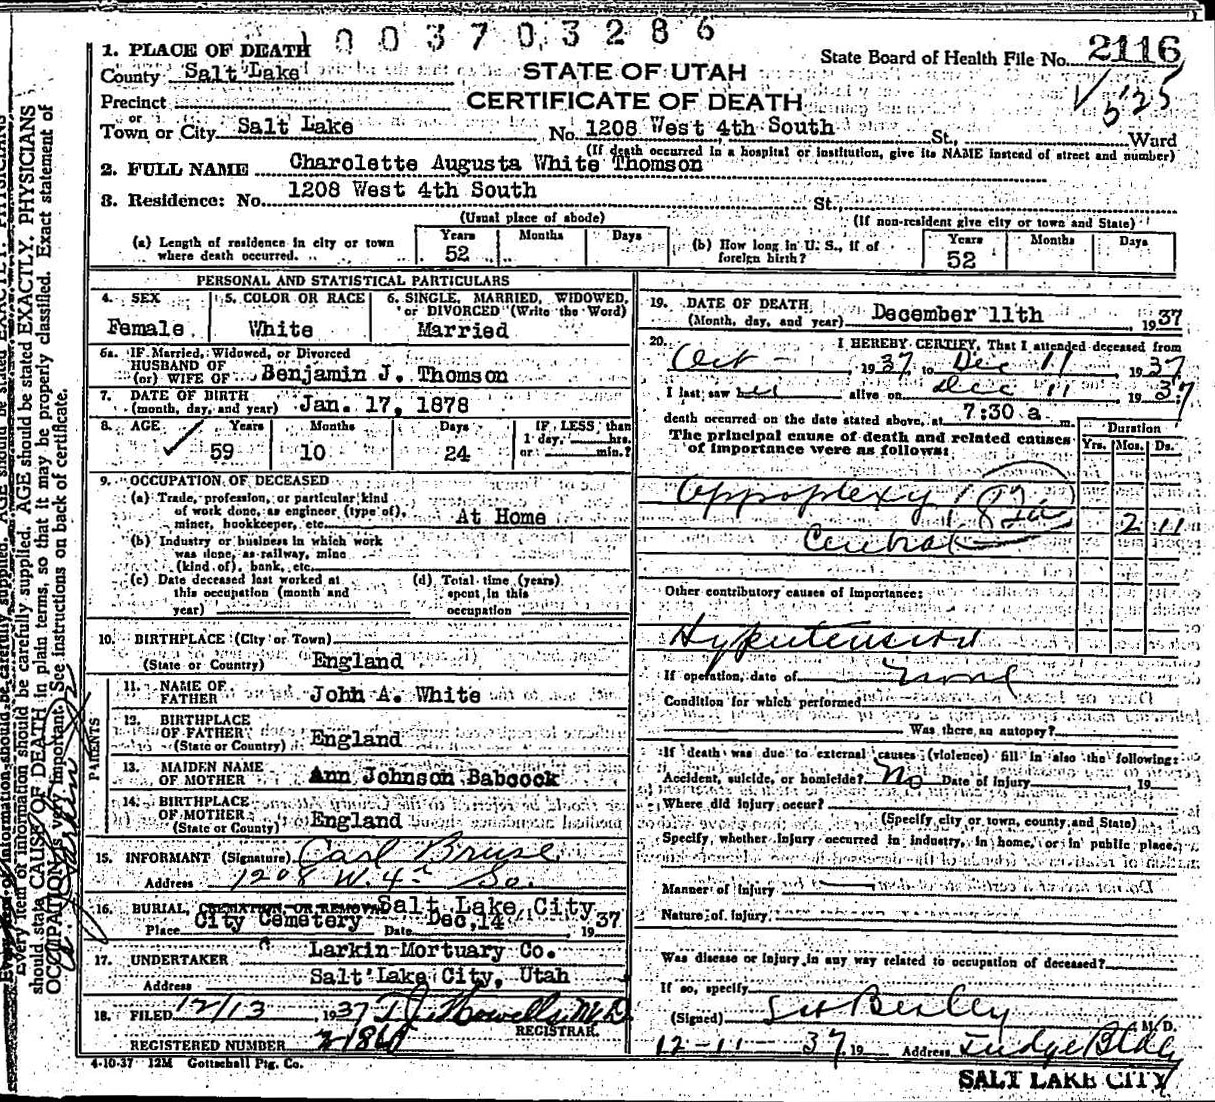 1003703286
1. PLACE OF DEATH
County Salt Lake
STATE OF UTAH
State Board of Health File No. 2116
CERTIFICATE OF DEATH
Precinct
or
Town or City Salt Lake No. 1208 West 4th South St., Ward
(If death occurred in a hospital or institution, give its NAME instead of street and number)
2. FULL NAME Charolette Augusta White Thomson
3. Residence: No. 1208 West 4th South St.
(Usual place of abode) (If non-resident give city or town and State)
(a) Length of residence in city or town where death occurred. Years 52 Months Days
(b) How long in U. S., if of foreign birth? Years 52 Months Days
PERSONAL AND STATISTICAL PARTICULARS
4. SEX Female
5. COLOR OR RACE White
6. SINGLE, MARRIED, WIDOWED, or DIVORCED (Write the Word) Married
6a. IF Married, Widowed, or Divorced
HUSBAND OF
(or) WIFE OF Benjamin J. Thomson
7. DATE OF BIRTH
(month, day, and year) Jan. 17, 1878
8. AGE Years 59 Months 10 Days 24
IF LESS than
1 day, hrs.
or min.?
9. OCCUPATION OF DECEASED
(a) Trade, profession, or particular kind
of work done, as engineer (type of),
miner, bookkeeper, etc. At Home
(b) Industry or business in which work
was done, as railway, mine
(kind of), bank, etc.
(c) Date deceased last worked at
this occupation (month and
year)
(d) Total time (years)
spent in this
occupation
10. BIRTHPLACE (City or Town)
(State or Country) England
PARENTS
11. NAME OF
FATHER John A. White
12. BIRTHPLACE
OF FATHER
(State or Country) England
13. MAIDEN NAME
OF MOTHER Ann Johnson Babcock
14. BIRTHPLACE
OF MOTHER
(State or County) England
15. INFORMANT (Signature) Carl Bruse
Address 1208 W. 4th So.
16. BURIAL, CREMATION OR REMOVAL Salt Lake City
Place City Cemetery Date Dec, 14 1937
17. UNDERTAKER Larkin Mortuary Co.
Address Salt Lake City, Utah
18. FILED 12/13 1937 Howells M.D.
REGISTRAR.
REGISTERED NUMBER
4-10-37 12M Gottschall Ptg. Co.
19. DATE OF DEATH
(Month, day, and year) December 11th 1937
20. I HEREBY CERTIFY, That I attended deceased from
Oct - 1937 to Dec 11 1937
I last saw her alive on Dec 11 1937
death occurred on the date stated above, at 7:30 a m.
The principal cause of death and related causes
of importance were as follows:
Duration
Yrs. Mos. Ds.
Appoplexy 82a
2 11
Cerebral
Other contributory causes of importance:
Hypertension
If operation, date of none
Condition for which performed
Was there an autopsy?
If death was due to external causes (violence) fill in also the following:
Accident, suicide, or homicide? No Date of injury 19
Where did injury occur?
(Specify city or town, county and State)
Specify whether injury occurred in industry, in home, or in public place,
Manner of injury
Nature of injury
Was disease or injury in any way related to occupation of deceased?
If so, specify
(Signed) M. D.
12-11-37 19 Address Judge Bldg
SALT LAKE CITY
Every item of information should be carefully supplied. AGE should be stated EXACTLY. PHYSICIANS
should state CAUSE OF DEATH in plain terms, so that it may be properly classified. Exact statement of
OCCUPATION is very important. See instructions on back of certificate.